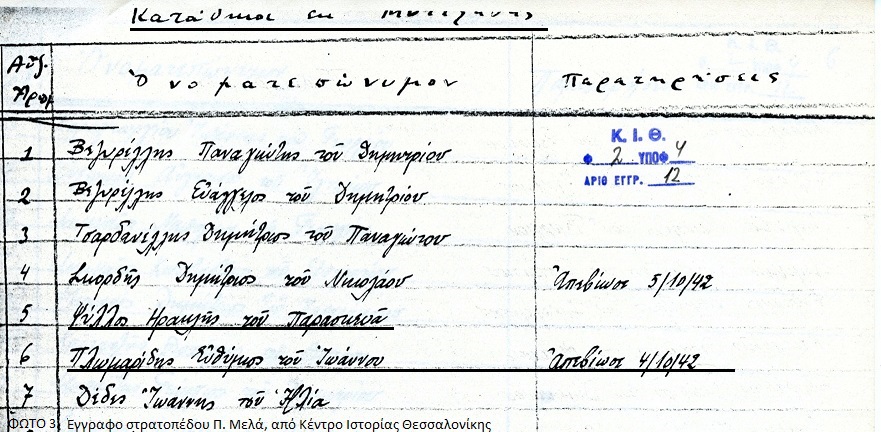 Κατάδικοι εκ Μυτιλήνης
Αυξ. Αριθμ Ὀνοματεπώνυμον Παρατηρήσεις
Κ. Ι. Θ.
Φ 2 ΥΠΟΦ 4
ΑΡΙΘ ΕΓΓΡ. 12
1 Βεζυρέλλης Παναγιώτης τοῦ Δημητρίου
2 Βεζυρέλλης Εὐάγγελος τοῦ Δημητρίου
3 Τσαρδανέλλης Δημήτριος τοῦ Παναγιώτου
4 Σκορδής Δημήτριος τοῦ Νικολάου Ἀπεβίωσε 5/10/42
5 Ψύλλος Ηρακλῆς τοῦ Παρασκευᾶ
6 Πλωμαρίδης Εὐθύμιος τοῦ Ἰωάννου Ἀπεβίωσε 4/10/42
7 Δέδες Ἰωάννης τοῦ Ἠλία
ΦΩΤΟ 3, Έγγραφο στρατοπέδου Π. Μελά, από Κέντρο Ιστορίας Θεσσαλονίκης